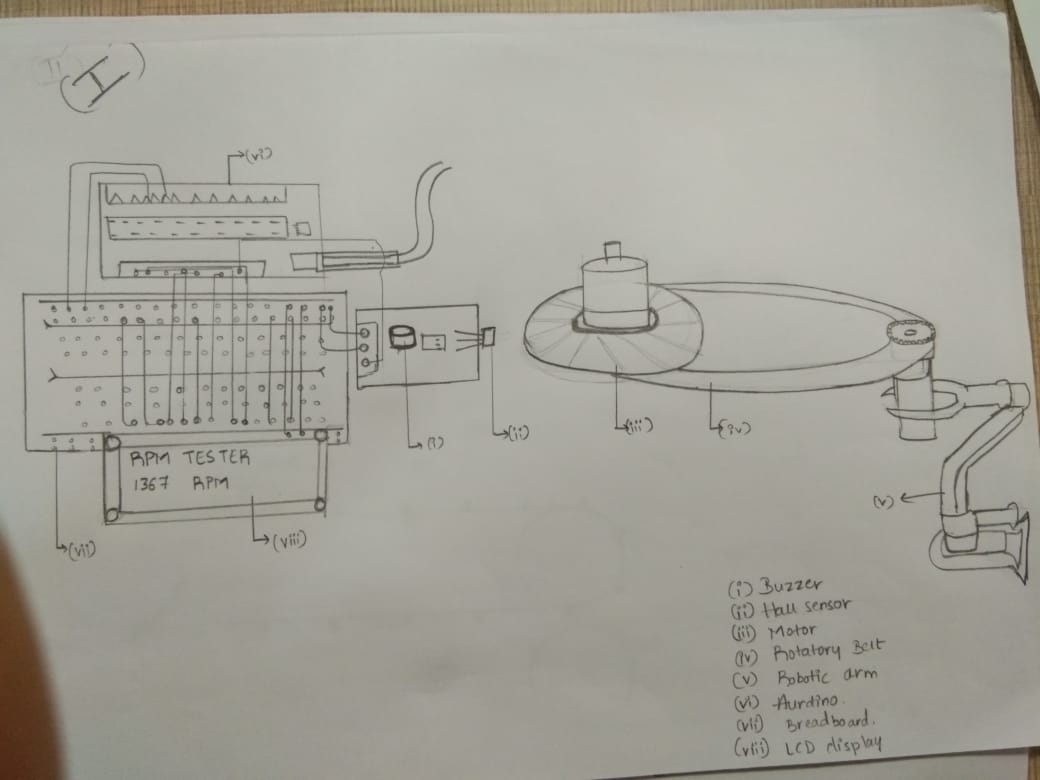 I
(vi)
(i)
(ii)
(iii)
(iv)
(v)
RPM TESTER
1367 RPM
(vii)
(viii)
(i) Buzzer
(ii) Hall sensor
(iii) Motor
(iv) Rotatory Belt
(v) Robotic arm
(vi) Aurdino.
(vii) Breadboard.
(viii) LCD display